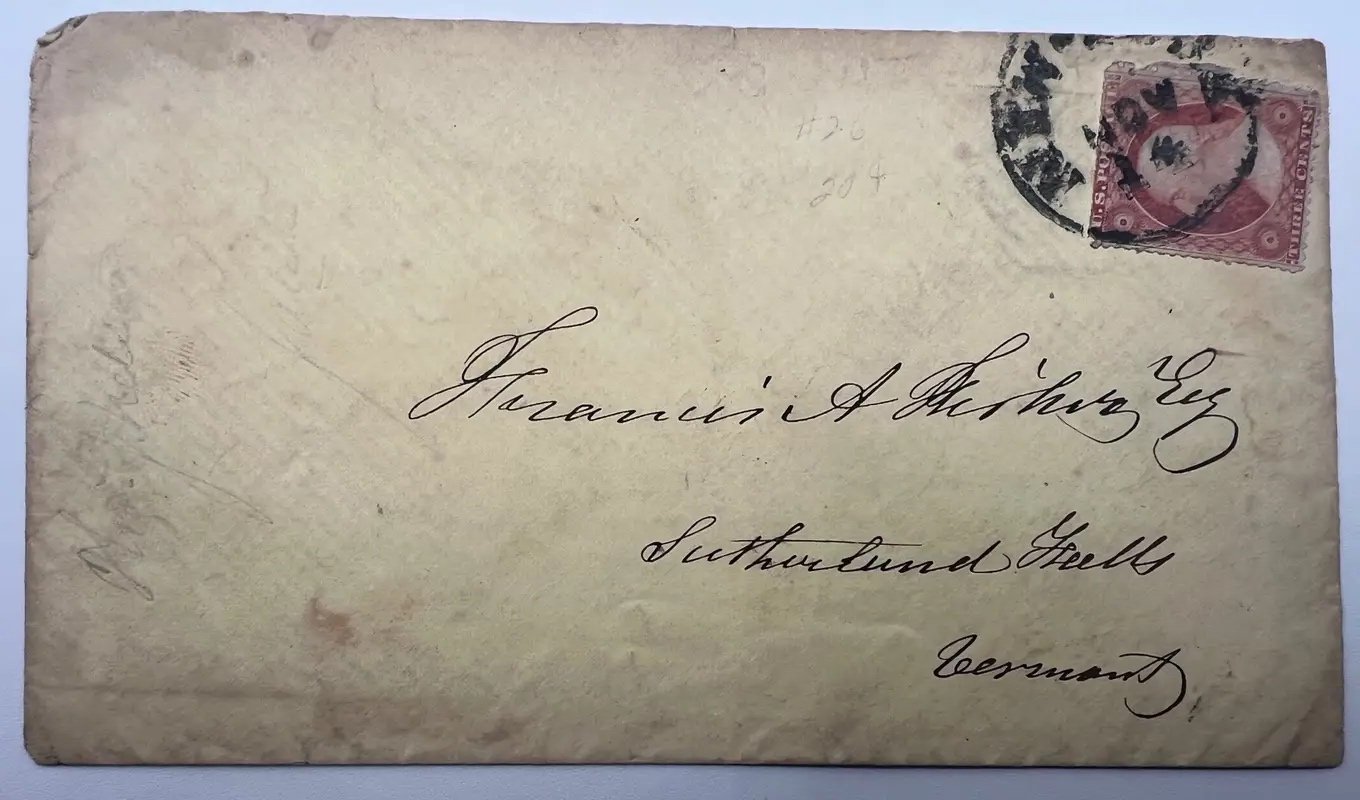 #26
204
U.S. POSTAGE
THREE CENTS
NEW
NOV
Francis A Fisher Esq
Sutherland Falls
Vermont